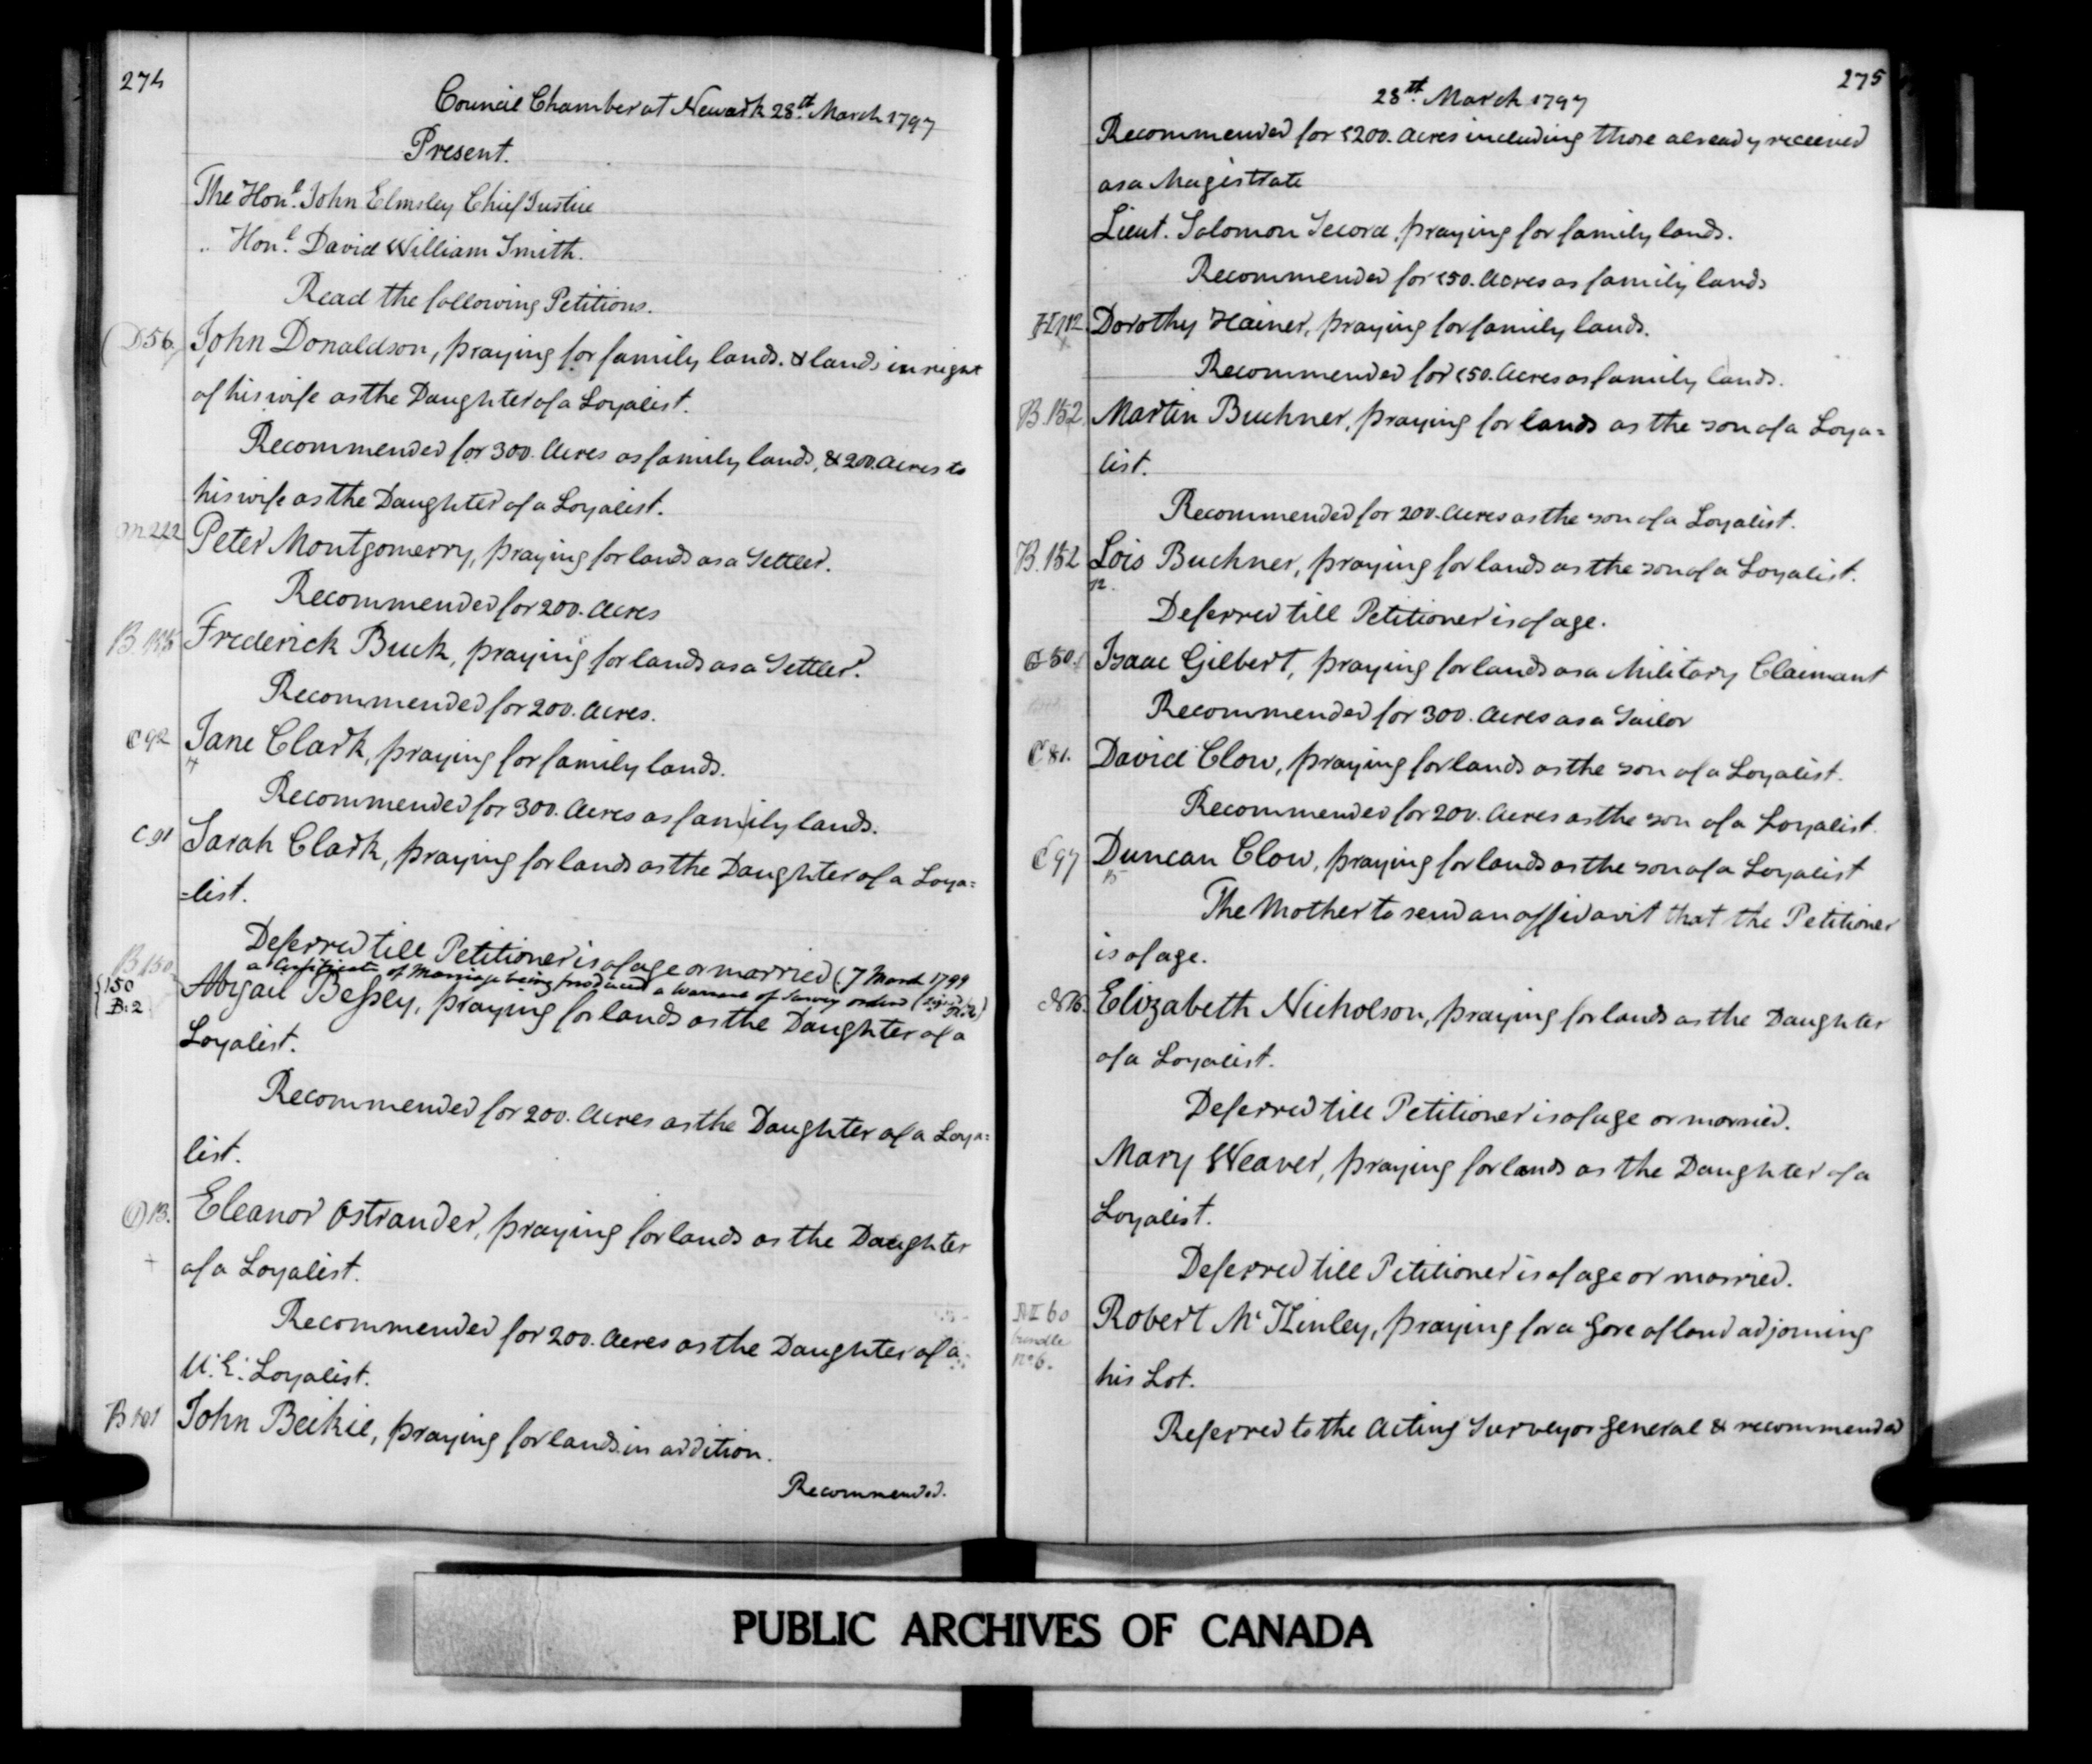 274
Council Chamber at Newark 28th. March 1797
Present.
The Honl. John Elmsley Chief Justice
.. Honl. David William Smith.
Read the following Petitions.
D56. John Donaldson, praying for family lands. & lands in right
of his wife as the Daughter of a Loyalist.
Recommended for 300. Acres as family lands, & 200. Acres to
his wife as the Daughter of a Loyalist.
Peter Montgomerry, praying for lands as a Settler.
Recommended for 200. Acres
Frederick Buck, praying for lands as a Settler.
Recommended for 200. Acres.
C92 Jane Clark, praying for family lands.
4
Recommended for 300. Acres as family lands.
C91 Sarah Clark, praying for lands as the Daughter of a Loya=
=list.
Deferred till Petitioner is of age or married (7 March 1799
a Certificate of Marriage being produced a Warrant of Survey ordered
B 150
150
B:2
Abigail Bessey, praying for lands as the Daughter of a
Loyalist.
Recommended for 200. Acres as the Daughter of a Loya=
list.
O 13. Eleanor Ostrander, praying for lands as the Daughter
+
of a Loyalist.
Recommended for 200. Acres as the Daughter of a
U. E. Loyalist.
John Beikie, praying for lands in addition.
Recommended.
275
28th. March 1797
Recommended for 1200. Acres including those already received
as a Magistrate
Lieut. Solomon Secord, praying for family lands.
Recommended for 150. Acres as family lands
H112 Dorothy Hainer, praying for family lands.
Recommended for 150. Acres as family lands.
B.152 Martin Buchner, praying for lands as the son of a Loya=
list.
Recommended for 200. Acres as the son of a Loyalist.
B.152 Lois Buchner, praying for lands as the son of a Loyalist.
12.
Deferred till Petitioner is of age.
G50. Isaac Gilbert, praying for lands as a Military Claimant
Recommended for 300. Acres as a Sailor
C81. David Clow, praying for lands as the son of a Loyalist.
Recommended for 200. Acres as the son of a Loyalist.
C97 Duncan Clow, praying for lands as the son of a Loyalist
15
The Mother to send an affidavit that the Petitioner
is of age.
Elizabeth Nicholson, praying for lands as the Daughter
of a Loyalist.
Deferred till Petitioner is of age or married.
Mary Weaver, praying for lands as the Daughter of a
Loyalist.
Deferred till Petitioner is of age or married.
bundle
No 6.
Robert McKinley, praying for a Gore of land adjoining
his Lot.
Referred to the Acting Surveyor General & recommended
PUBLIC ARCHIVES OF CANADA